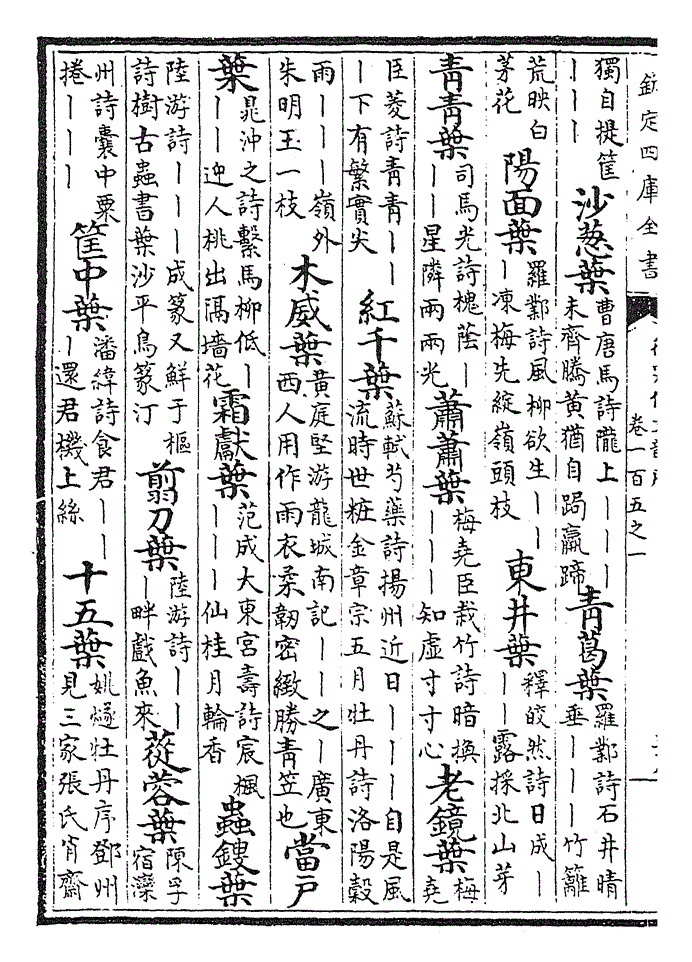 欽定四庫全書
卷一百五之一
獨自提筐｜｜｜ 沙葱葉 曹唐馬詩隴上｜｜｜未齊騰黄猶自跼羸蹄 青葛葉 羅鄴詩石井晴垂｜｜｜竹籬
荒映白茅花 陽面葉 羅鄴詩風柳欲生｜｜｜凍梅先綻嶺頭枝 東井葉 釋皎然詩日成｜｜｜露採北山芽
青青葉 司馬光詩槐蔭｜｜｜星隣兩兩光 蕭蕭葉 梅堯臣栽竹詩暗換｜｜｜知虚寸寸心 老鏡葉 梅堯
臣菱詩青青｜｜｜下有繁實尖 紅千葉 蘇軾芍藥詩揚州近日｜｜｜自是風流時世粧金章宗五月牡丹詩洛陽穀
雨｜｜｜嶺外朱明玉一枝 木威葉 黄庭堅游龍城南記｜｜之｜廣東西人用作雨衣柔韌密緻勝青笠也 當戸
葉 晁沖之詩繫馬柳低｜｜｜迎人桃出隔墻花 霜獻葉 范成大東宫壽詩宸楓｜｜｜仙桂月輪香 蟲鏤葉
陸游詩｜｜｜成篆又鮮于樞詩樹古蟲書葉沙平鳥篆汀 翦刀葉 陸游詩｜｜｜畔戲魚來 蓯蓉葉 陳孚宿灤
州詩囊中粟捲｜｜｜ 筐中葉 潘緯詩食君｜｜｜還君機上絲 十五葉 姚燧牡丹序鄧州見三家張氏肖齋